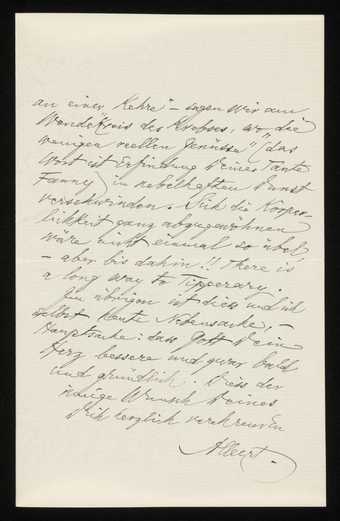 an einer Kehre" – sagen wir am
Wendekreis des Krebses, wo die
wenigen reellen Genüsse" (das
Wort ist Erfindung Deiner Tante
Fanny) in nebelhaften Dunst
verschwinden. Sich die Körper-
lichkeit ganz abgewöhnen
wäre nicht einmal so übel,
– aber bis dahin!! There is
a long way to Tipperary.
Im übrigen ist dies und ich
selbst heute Nebensache, –
Hauptsache: dass Gott Dein
Herz bessere und zwar bald
und gründlich. Diess der
innige Wunsch Deines
Dich herzlich verehrenden
Albert.